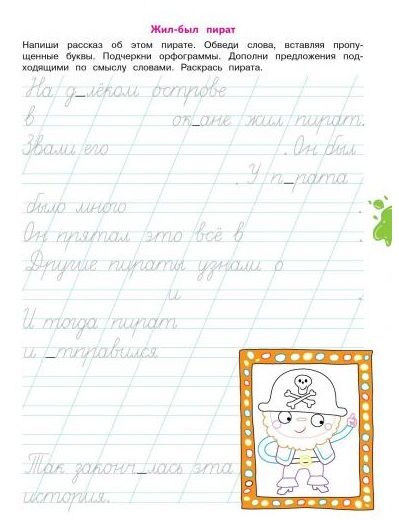 Жил-был пират
Напиши рассказ об этом пирате. Обведи слова, вставляя пропу-
щенные буквы. Подчеркни орфограммы. Дополни предложения под-
ходящими по смыслу словами. Раскрась пирата.
На д_лёком острове
в ок_ане жил пират.
Звали его . Он был
. У п_рата
было много .
Он прятал это всё в .
Другие пираты узнали о
и .
И тогда пират
и _тправился
Так законч_лась эта
история.